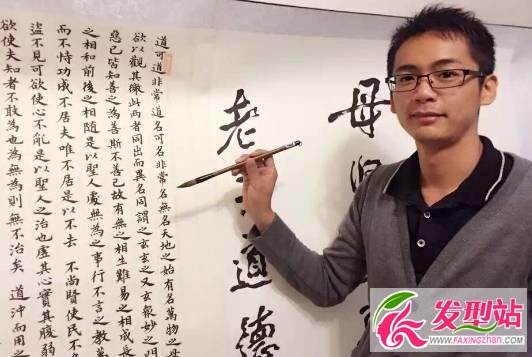 母
老
道德
道可道非常道名可名非常名無名天地之始有名萬物之母
欲以觀其徼此兩者同出而異名同謂之玄玄之又玄衆妙之門
惡已皆知善之為善斯不善已故有無之相生難易之相成長
之相和前後之相隨是以聖人處無為之事行不言之教萬
而不恃功成不居夫唯不居是以不去 不尚賢使民不
盜不見可欲使心不亂是以聖人之治也虛其心實其腹弱
欲使夫知者不敢為也為無為則無不治矣 道沖而用之
发型站
WWW.FAXINGZHAN.COM